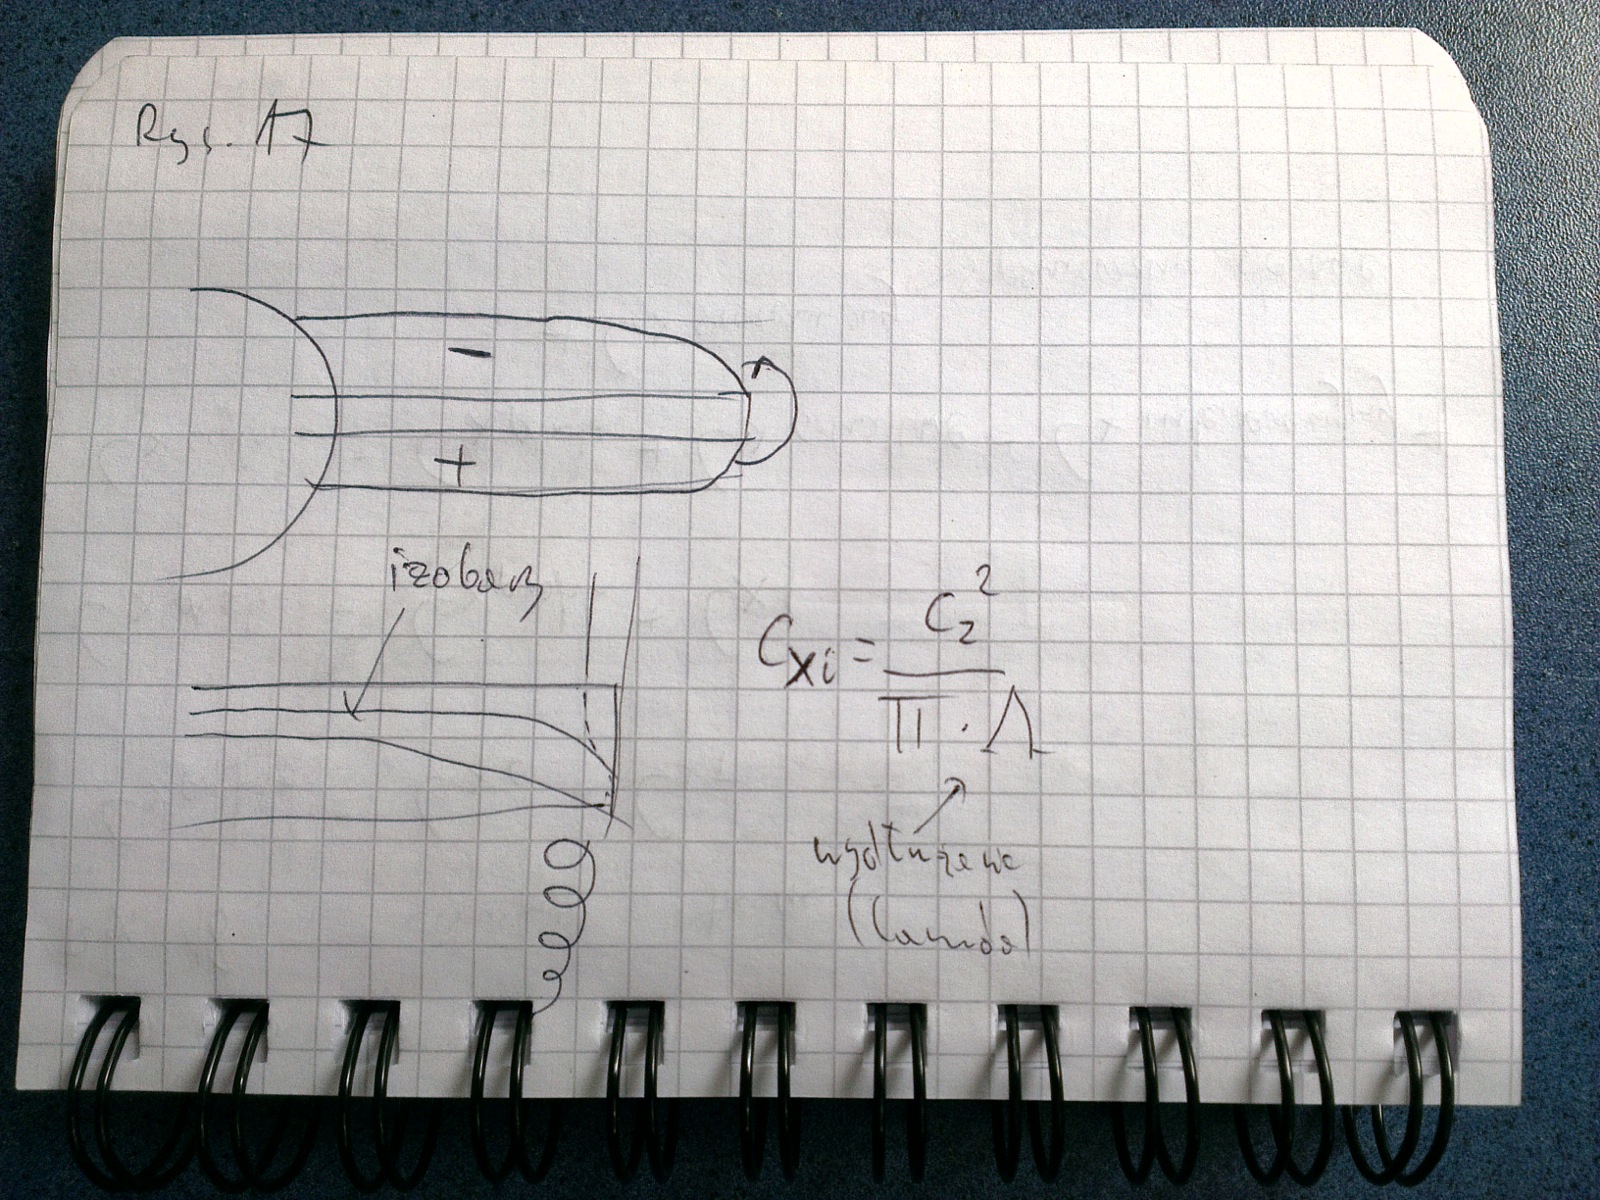 Rys. 17
-
+
izobary
Cxi = Cz² / Π · Λ
wydłużenie
(lamda)